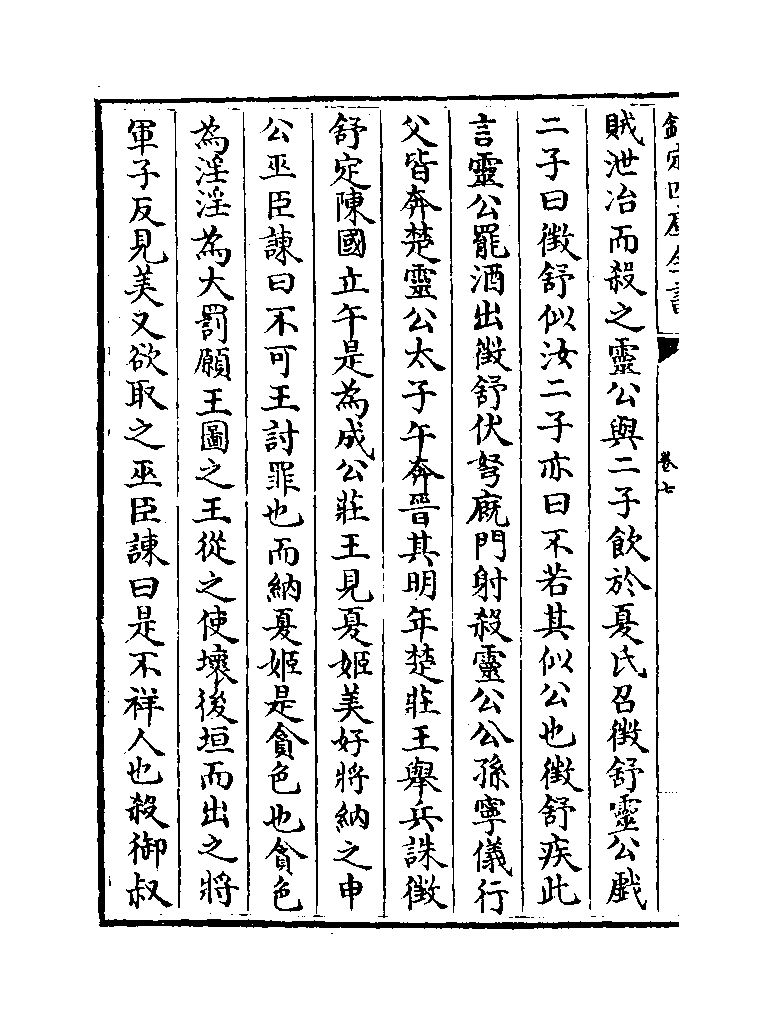 欽定四庫全書
卷七
賊泄冶而殺之靈公與二子飲於夏氏召徵舒靈公戲
二子曰徵舒似汝二子亦曰不若其似公也徵舒疾此
言靈公罷酒出徵舒伏弩廐門射殺靈公公孫寧儀行
父皆奔楚靈公太子午奔晉其明年楚莊王舉兵誅徵
舒定陳國立午是為成公莊王見夏姬美好將納之申
公巫臣諫曰不可王討罪也而納夏姬是貪色也貪色
為淫淫為大罰願王圖之王從之使壞後垣而出之將
軍子反見美又欲取之巫臣諫曰是不祥人也殺御叔